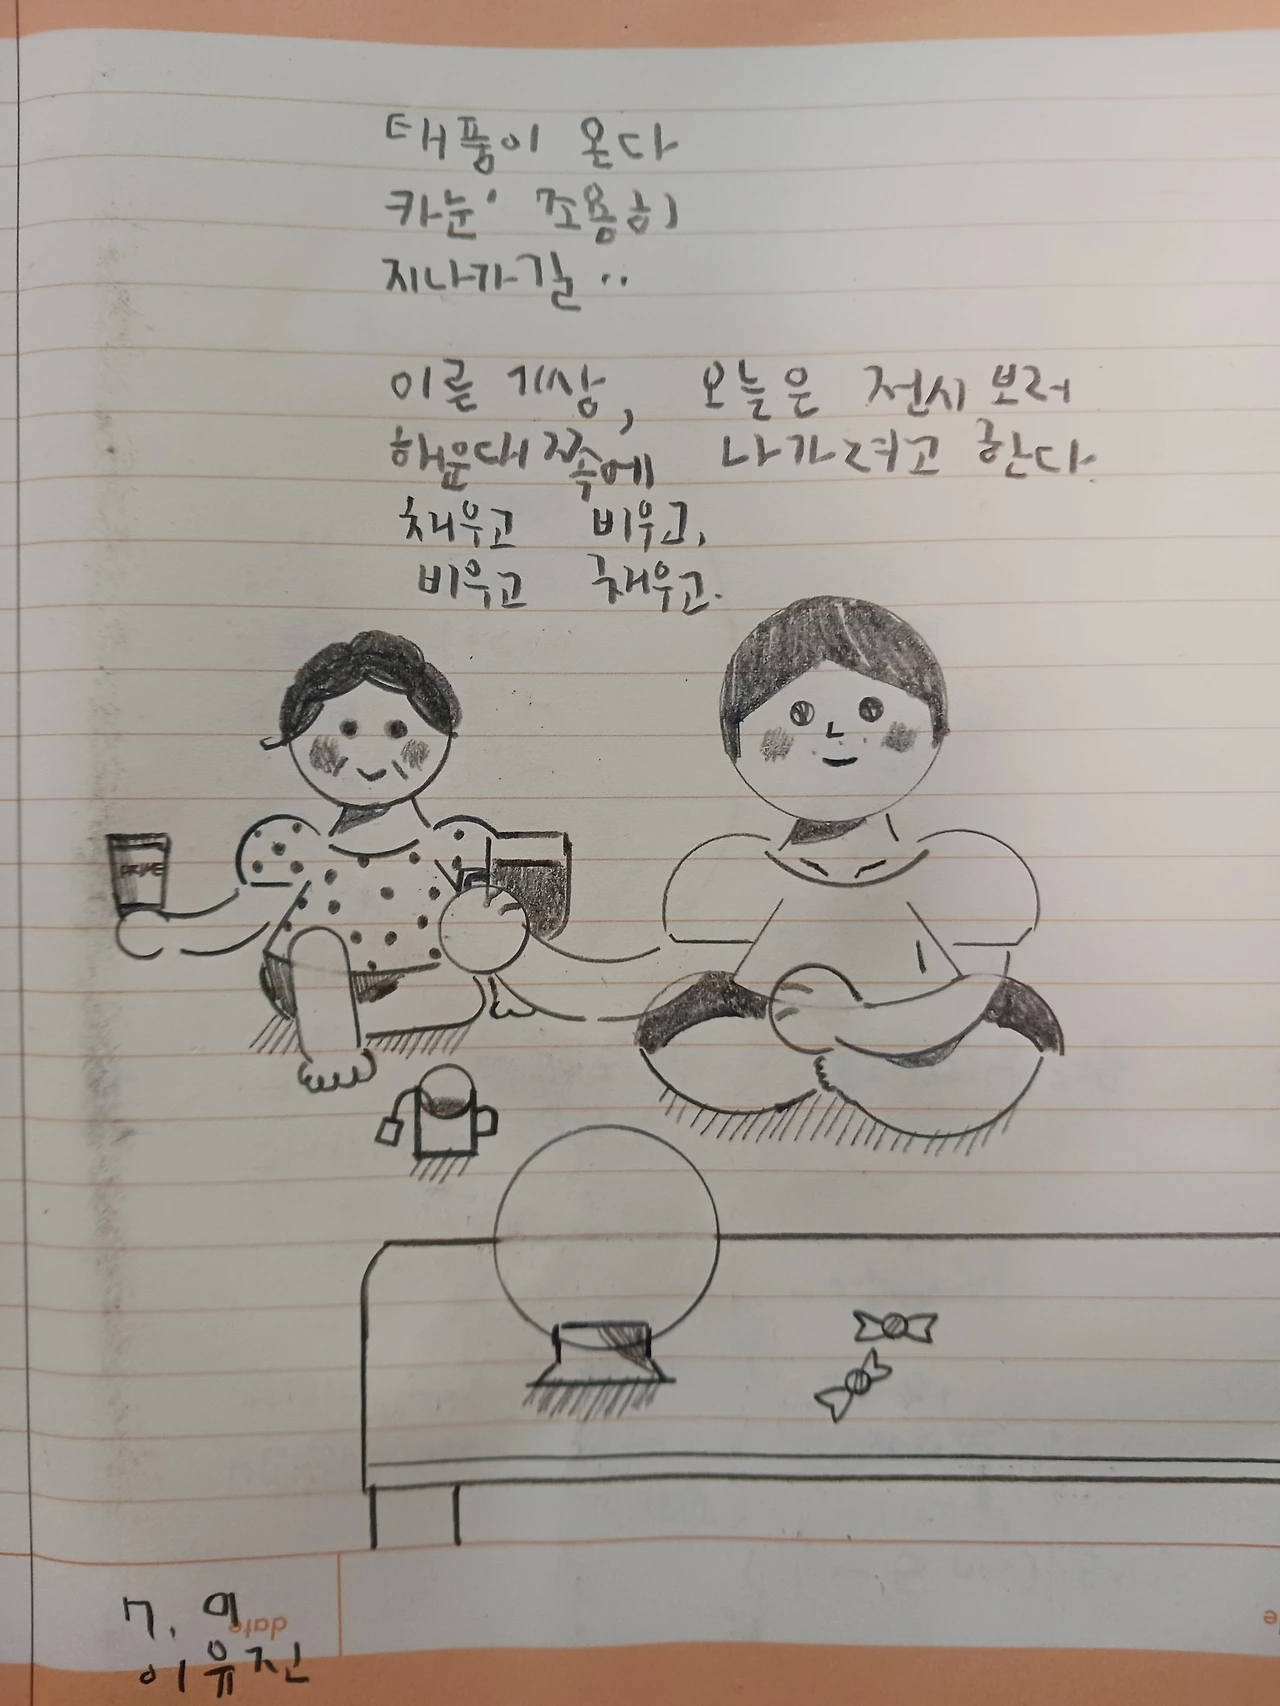 태풍이 온다
카눈' 조용히
지나가길..
이른 기상, 오늘은 전시 보러
해운대 쪽에 나가려고 한다.
채우고 비우고,
비우고 채우고.
7. 9
date
이유진